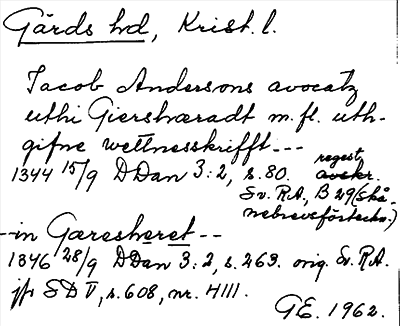 Gärds hd, Krist. l.
Jacob Andersons avocatz
uthi Giershæradt m.fl. uth-
gifne wettnesskrifft---
regest
1344 15/9 DDan 3:2, s.80. avskr.
Sv. R.A., B 29 (Skå-
nebrevsförteckn.)
--in Gæresheret--
1346 28/9 DDan 3:2, s.263. orig. Sv. R.A.
jfr SD V, s.608, nr. 4111.
GE. 1962.